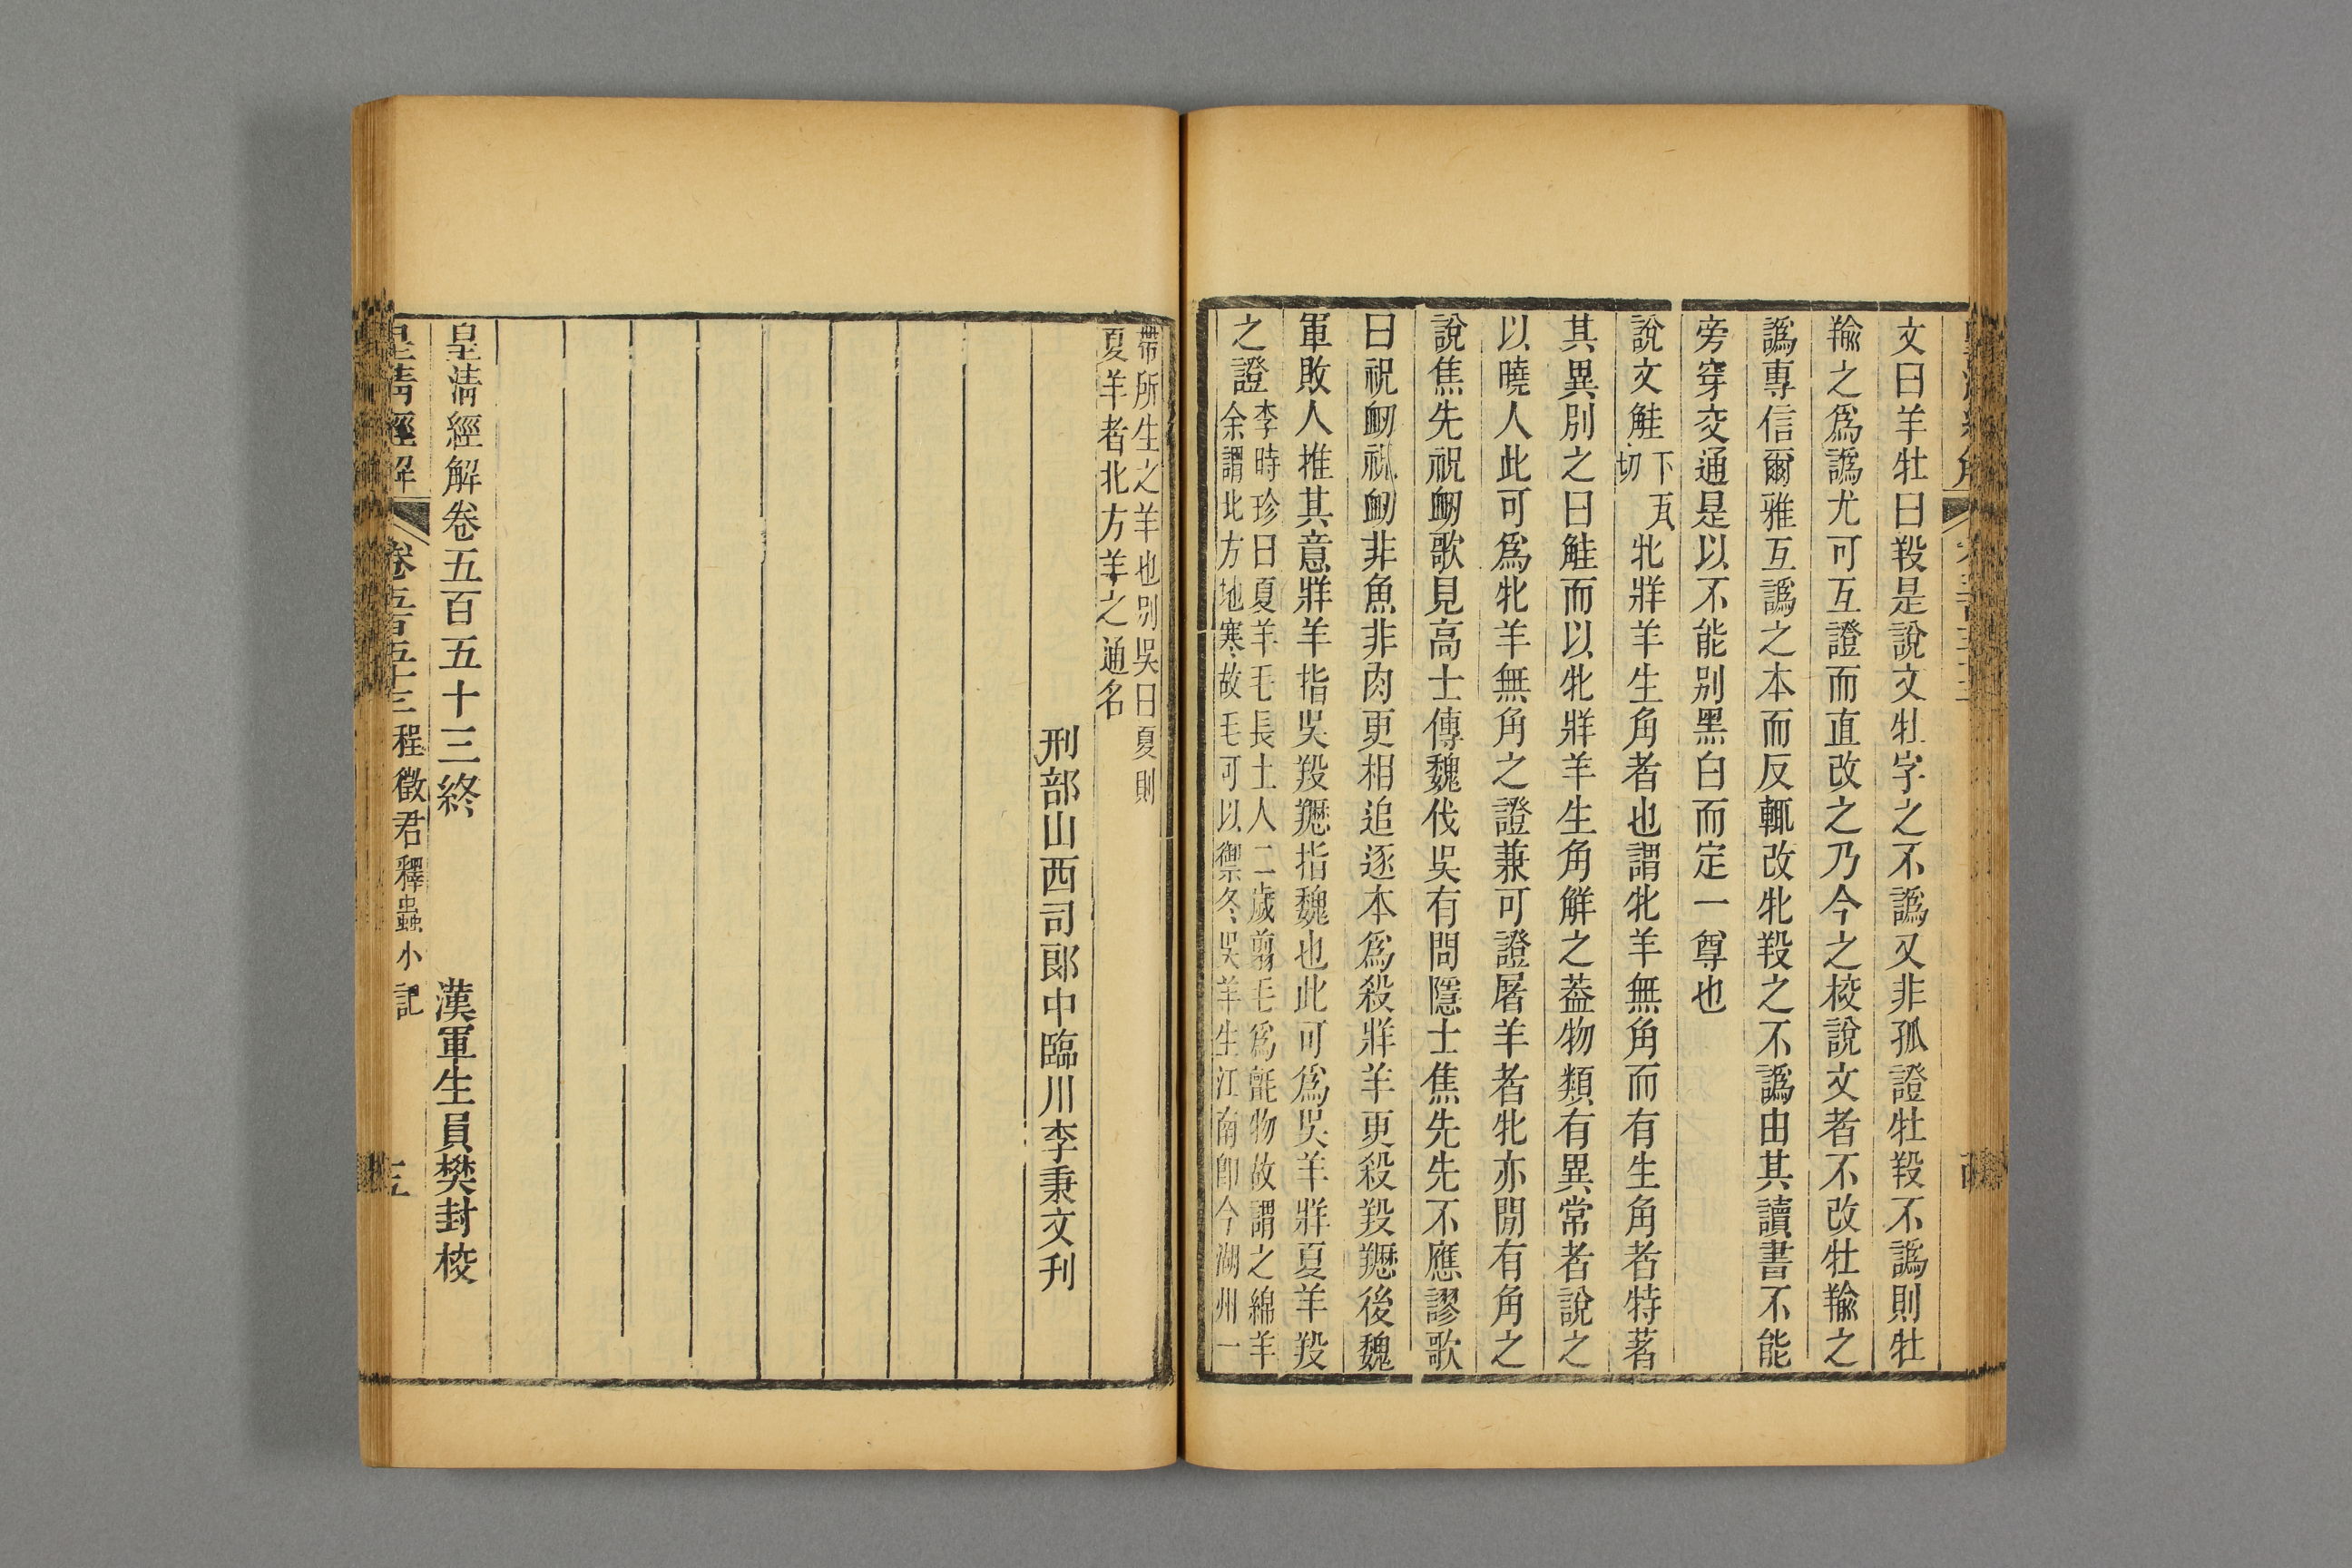 文曰羊牡曰羖是說文牡字之不譌又非孤證牡羖不譌則牡
羭之爲譌尤可互證而直改之乃今之校說文者不改牡羭之
譌專信爾雅互譌之本而反輒改牝羖之不譌由其讀書不能
旁穿交通是以不能別黑白而定一尊也
說文觟下瓦切牝牂羊生角者也謂牝羊無角而有生角者特著
其異別之曰觟而以牝牂羊生角解之葢物類有異常者說之
以曉人此可爲牝羊無角之證兼可證屠羊者牝亦閒有角之
說焦先祝衂歌見高士傳魏伐吳有問隱士焦先先不應謬歌
曰祝衂祝衂非魚非肉更相追逐本爲殺牂羊更殺羖䍽後魏
軍敗人推其意牂羊指吳羖䍽指魏也此可爲吳羊牂夏羊羖
之證李時珍曰夏羊毛長土人二歲剪毛爲氈物故謂之綿羊
余謂北方地寒故毛可以禦冬吳羊生江南卽今湖州一
帶所生之羊也別吳曰夏則
夏羊者北方羊之通名
刑部山西司郎中臨川李秉文刊
皇淸經解卷五百五十三終　漢軍生員樊封校
皇淸經解　卷五百五十三　程徵君釋蟲小記